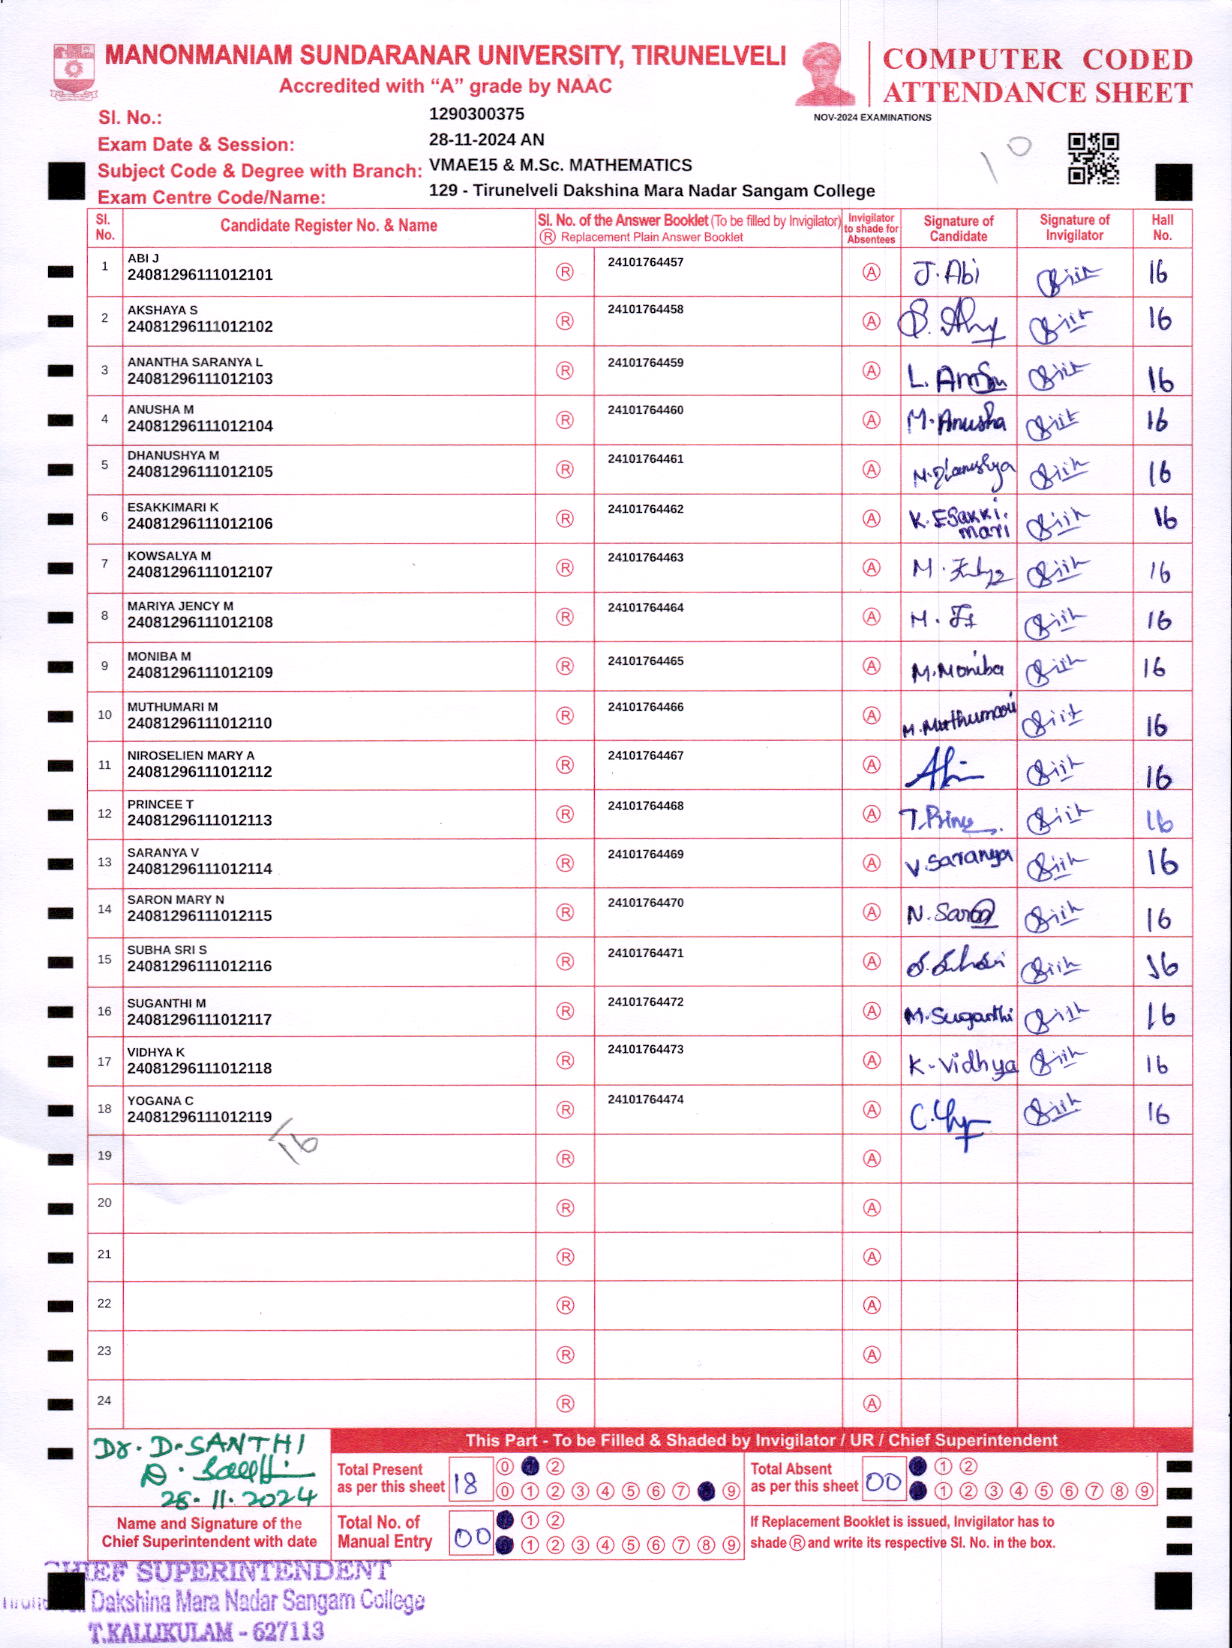 MANONMANIAM SUNDARANAR UNIVERSITY, TIRUNELVELI
Accredited with “A” grade by NAAC
COMPUTER CODED
ATTENDANCE SHEET
NOV-2024 EXAMINATIONS
Sl. No.: 1290300375
Exam Date & Session: 28-11-2024 AN
Subject Code & Degree with Branch: VMAE15 & M.Sc. MATHEMATICS
Exam Centre Code/Name: 129 - Tirunelveli Dakshina Mara Nadar Sangam College
10
Sl. No. Candidate Register No. & Name Sl. No. of the Answer Booklet (To be filled by Invigilator) Ⓡ Replacement Plain Answer Booklet Invigilator to shade for Absentees Signature of Candidate Signature of Invigilator Hall No.
1 ABI J 24081296111012101 Ⓡ 24101764457 Ⓐ J. Abi 16
2 AKSHAYA S 24081296111012102 Ⓡ 24101764458 Ⓐ 16
3 ANANTHA SARANYA L 24081296111012103 Ⓡ 24101764459 Ⓐ 16
4 ANUSHA M 24081296111012104 Ⓡ 24101764460 Ⓐ M. Anusha 16
5 DHANUSHYA M 24081296111012105 Ⓡ 24101764461 Ⓐ M. Dhanushya 16
6 ESAKKIMARI K 24081296111012106 Ⓡ 24101764462 Ⓐ K. Esakki. mari 16
7 KOWSALYA M 24081296111012107 Ⓡ 24101764463 Ⓐ 16
8 MARIYA JENCY M 24081296111012108 Ⓡ 24101764464 Ⓐ 16
9 MONIBA M 24081296111012109 Ⓡ 24101764465 Ⓐ M. Moniba 16
10 MUTHUMARI M 24081296111012110 Ⓡ 24101764466 Ⓐ M. Muthumari 16
11 NIROSELIEN MARY A 24081296111012112 Ⓡ 24101764467 Ⓐ 16
12 PRINCEE T 24081296111012113 Ⓡ 24101764468 Ⓐ 16
13 SARANYA V 24081296111012114 Ⓡ 24101764469 Ⓐ V. Saranya 16
14 SARON MARY N 24081296111012115 Ⓡ 24101764470 Ⓐ 16
15 SUBHA SRI S 24081296111012116 Ⓡ 24101764471 Ⓐ 16
16 SUGANTHI M 24081296111012117 Ⓡ 24101764472 Ⓐ M. Suganthi 16
17 VIDHYA K 24081296111012118 Ⓡ 24101764473 Ⓐ K. Vidhya 16
18 YOGANA C 24081296111012119 Ⓡ 24101764474 Ⓐ 16
16
19 Ⓡ Ⓐ
20 Ⓡ Ⓐ
21 Ⓡ Ⓐ
22 Ⓡ Ⓐ
23 Ⓡ Ⓐ
24 Ⓡ Ⓐ
Dr. D. SANTHI
28.11.2024
Name and Signature of the
Chief Superintendent with date
This Part - To be Filled & Shaded by Invigilator / UR / Chief Superintendent
Total Present as per this sheet 18
0 2
0 1 2 3 4 5 6 7 9
Total Absent as per this sheet 00
1 2
1 2 3 4 5 6 7 8 9
Total No. of Manual Entry 00
1 2
1 2 3 4 5 6 7 8 9
If Replacement Booklet is issued, Invigilator has to
shade Ⓡ and write its respective Sl. No. in the box.
CHIEF SUPERINTENDENT
Dakshina Mara Nadar Sangam College
T.KALLIKULAM - 627113